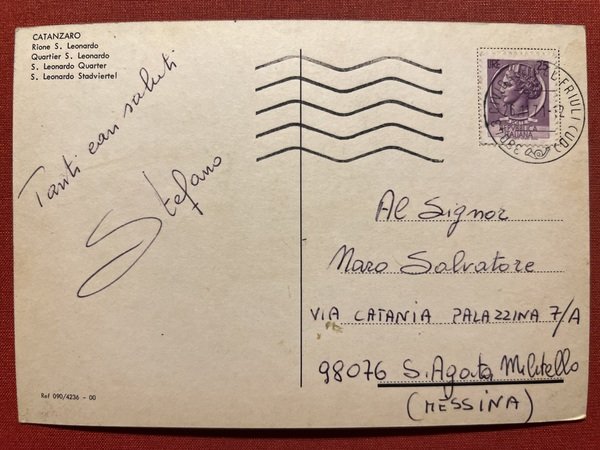 CATANZARO
Rione S. Leonardo
Quartier S. Leonardo
S. Leonardo Quarter
S. Leonardo Stadviertel
Tanti cari saluti
Stefano
LIRE 25
REPUBBLICA
ITALIANA
FRIULI (UD)
Al Signor
Naro Salvatore
VIA CATANIA PALAZZINA 7/A
98076 S. Agata Militello
(MESSINA)
Ref 090/4236 - 00